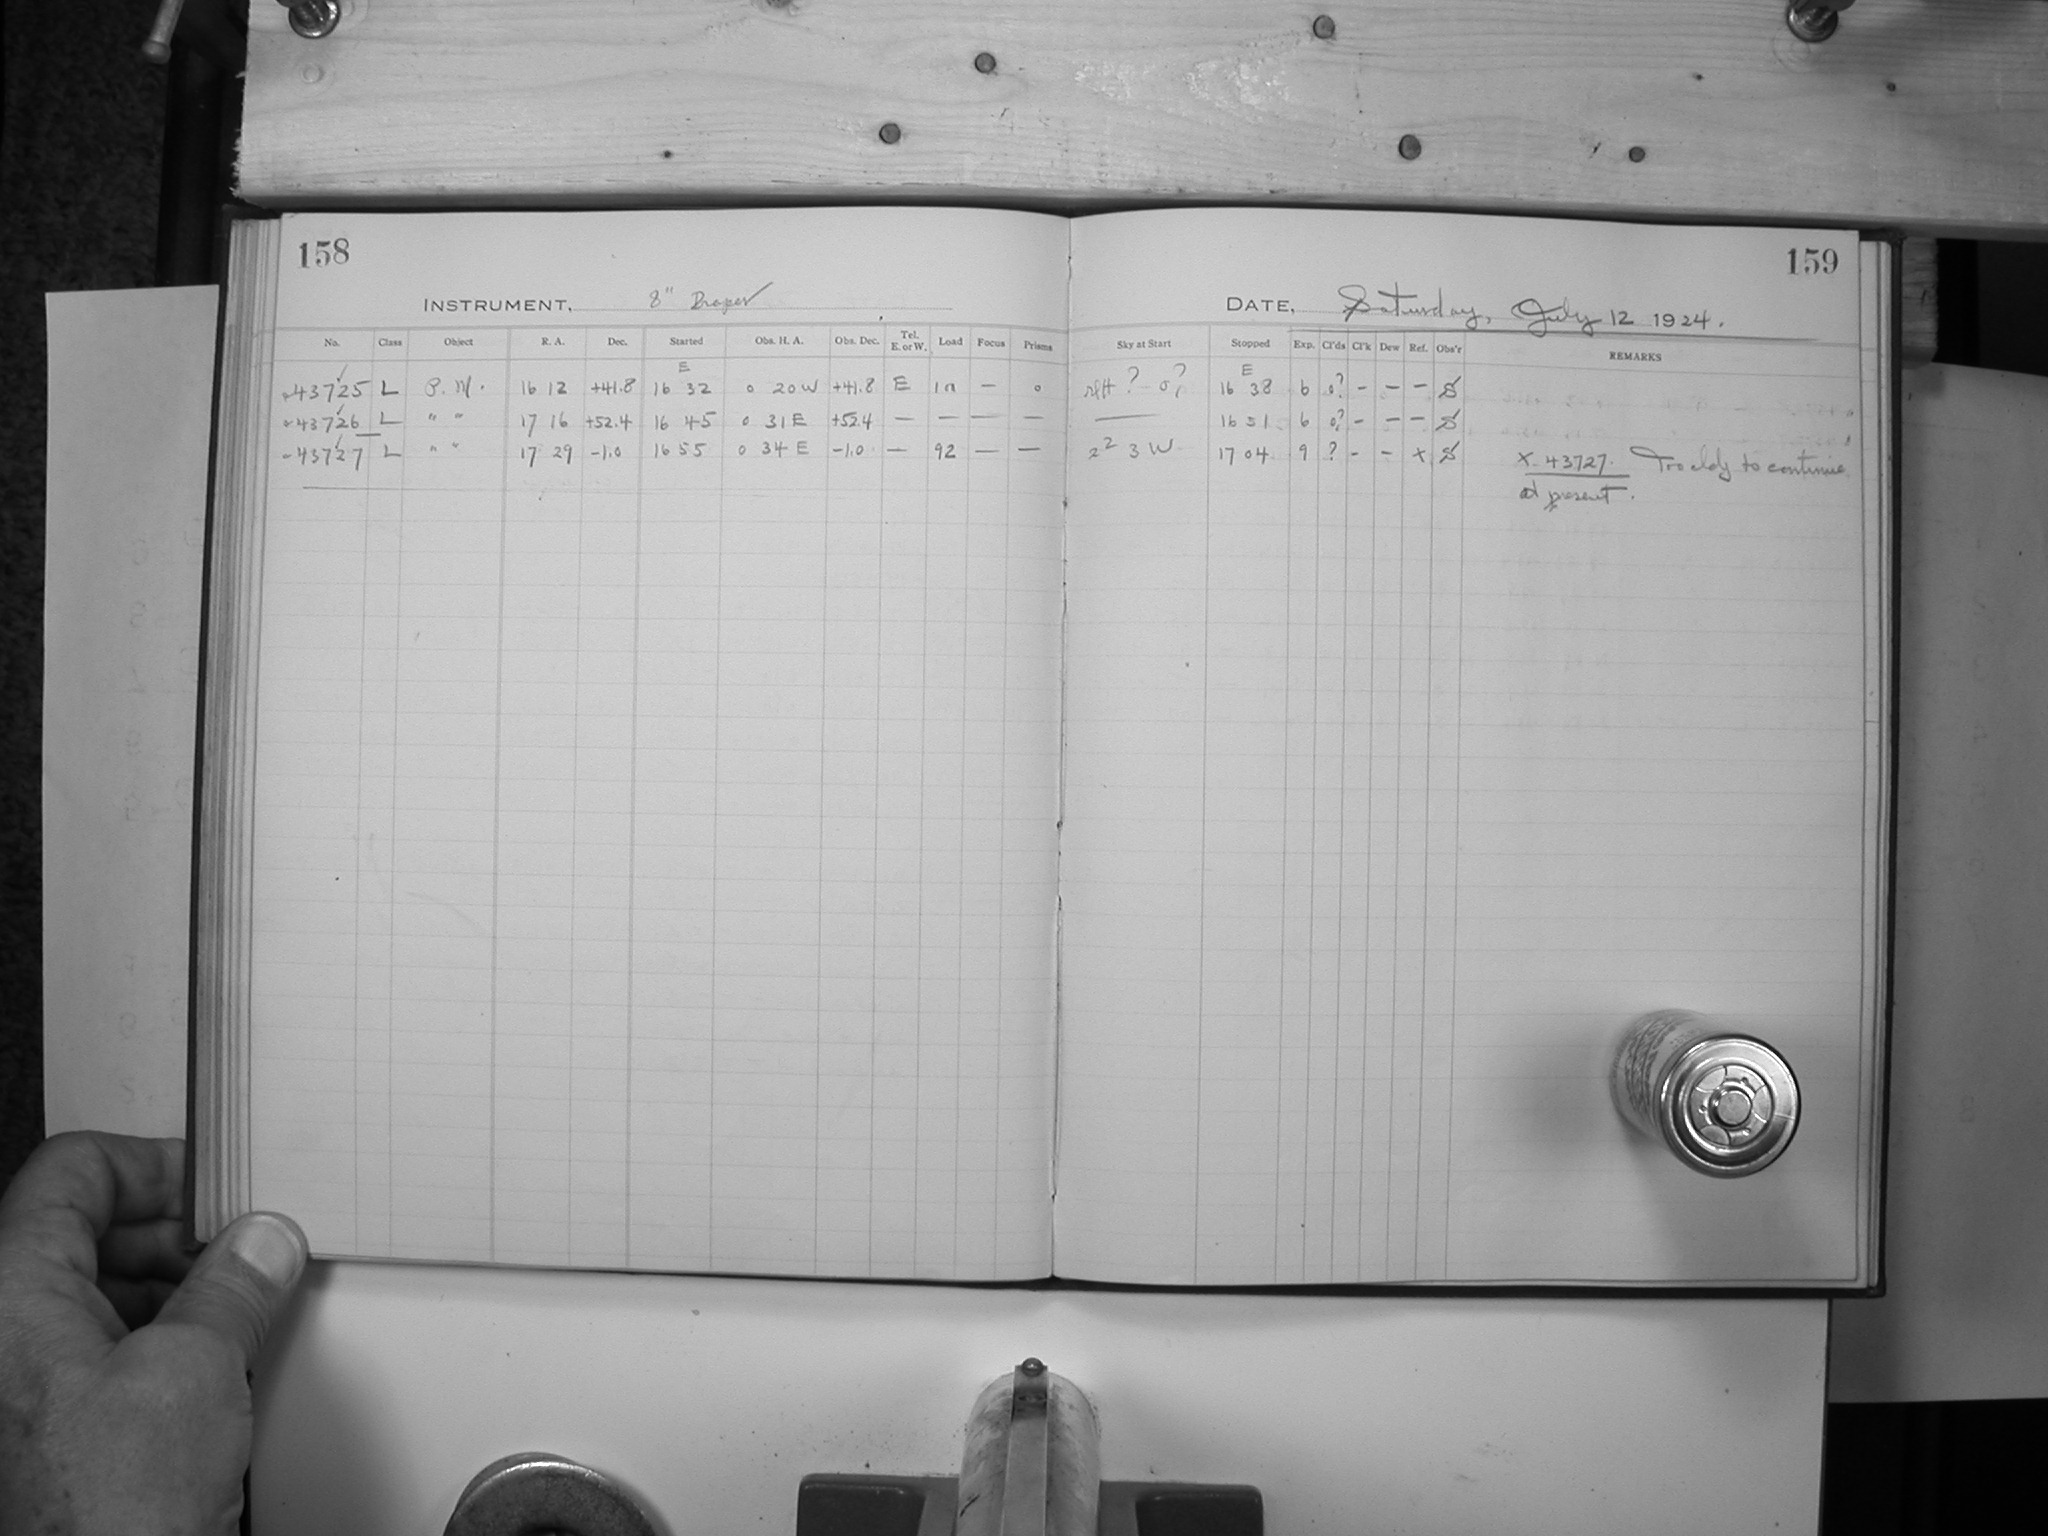 158
INSTRUMENT, 8" Draper
No. Class Object R. A. Dec. Started Obs. H. A. Obs. Dec. Tel. E. or W. Load Focus Prisms
E
43725 L P. M. 16 12 +41.8 16 32 0 20 W +41.8 E 1n — 0
43726 L " " 17 16 +52.4 16 45 0 31 E +52.4 — — — —
43727 L " " 17 29 -1.0 16 55 0 34 E -1.0 — 92 — —
159
DATE, Saturday, July 12 1924.
Sky at Start Stopped Exp. Cl'ds Cl'k Dew Ref. Obs'r REMARKS
E
? 16 38 6 0? - - - S
— 16 51 6 0? - - - S
2² 3 W 17 04 9 ? - - x S x 43727. Too cldy to continue
at present.